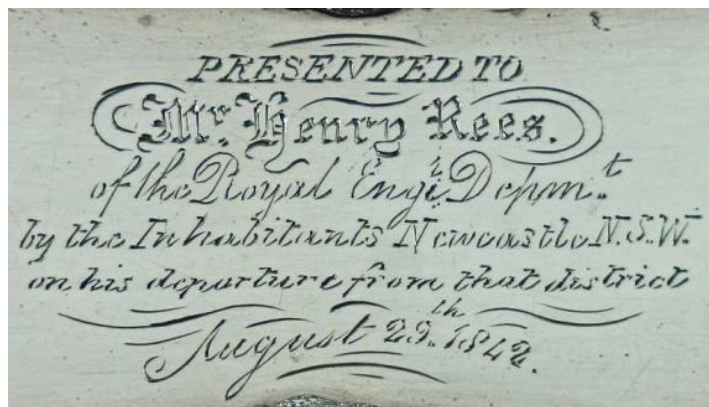 PRESENTED TO
Mr. Henry Rees.
of the Royal Engi.r Depm.t
by the Inhabitants Newcastle N.S.W.
on his departure from that district
August 29.th 1842.